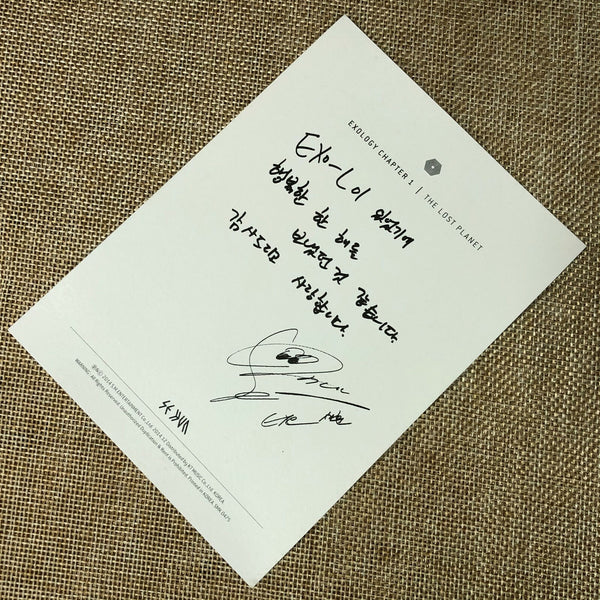 EXOLOGY CHAPTER 1 | THE LOST PLANET
EXO-L이 있었기에
행복한 한 해를
보냈던 것 같습니다.
감사드리고 사랑합니다.
EXO 시우민
℗&© 2014 S.M.ENTERTAINMENT Co., Ltd. 2014.12. Distributed by KT MUSIC Co., Ltd. KOREA.
WARNING : All Rights Reserved. Unauthorized Duplication & Rent is Prohibited. Printed in KOREA.